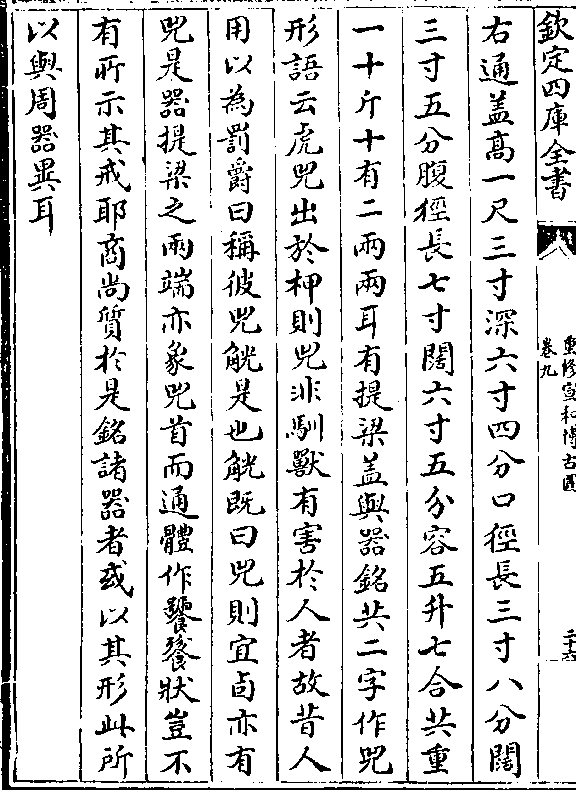 欽定四庫全書
重修宣和博古圖
卷九
二十六
右通蓋髙一尺三寸深六寸四分口徑長三寸八分闊
三寸五分腹徑長七寸闊六寸五分容五升七合共重
一十斤十有二兩兩耳有提梁蓋與器銘共二字作兕
形語云虎兕出於柙則兕非馴獸有害於人者故昔人
用以為罰爵曰稱彼兕觥是也觥既曰兕則宜卣亦有
兕是器提梁之兩端亦象兕首而通體作饕餮狀豈不
有所示其戒耶商尚質於是銘諸器者或以其形此所
以與周器異耳